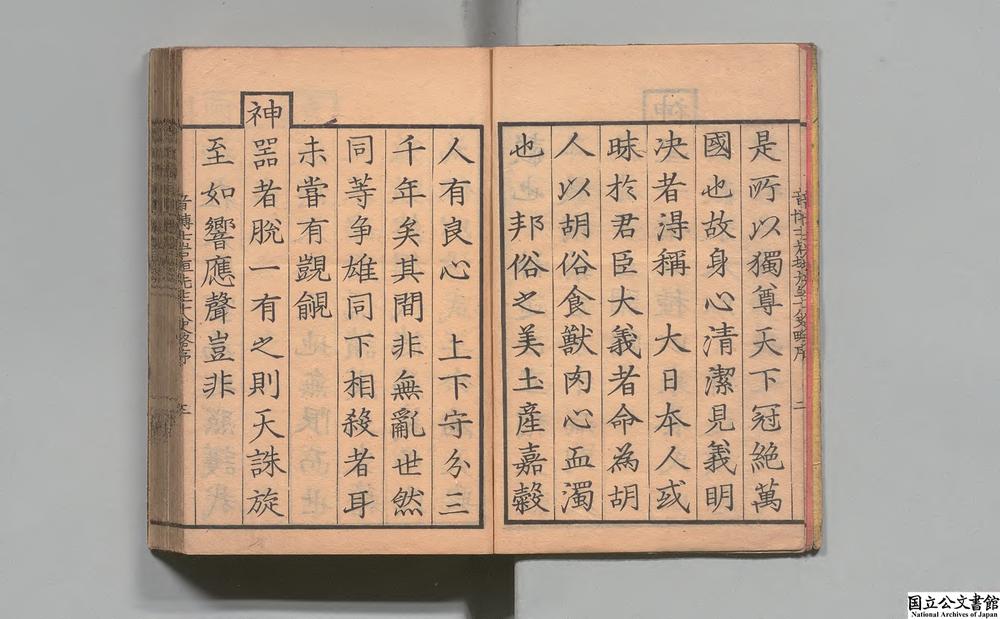 是所以獨尊天下冠絶萬
國也故身心清潔見義明
决者得稱　大日本人或
昧於君臣大義者命為胡
人以胡俗食獸肉心血濁
也　邦俗之美土産嘉穀
人有良心　上下守分三
千年矣其間非無亂世然
同等争雄同下相殺者耳
未嘗有覬覦
神器者脫一有之則天誅旋
至如響應聲豈非
音博士岩垣先生十八史略序
三
二
国立公文書館
National Archives of Japan